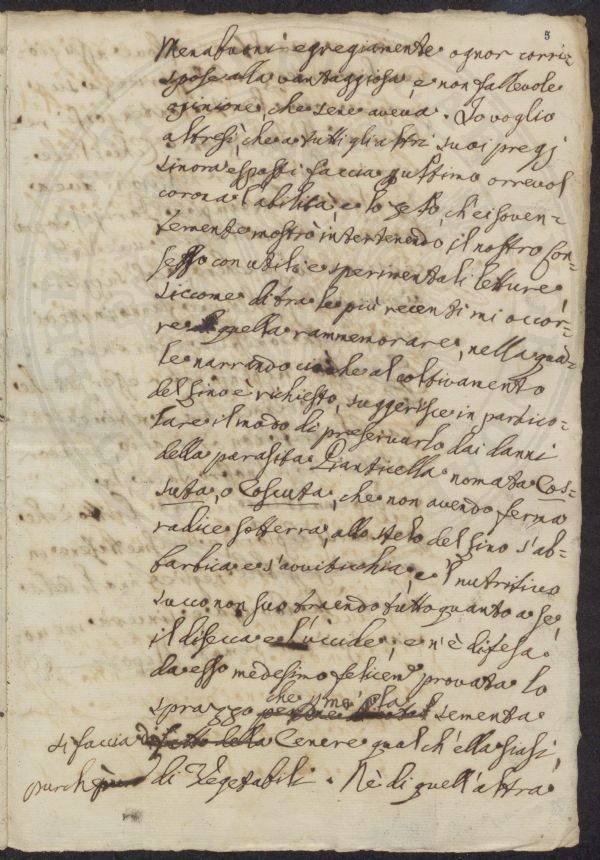 8
Menabuoni egregiamente ognor corri-
spose alla vantaggiosa, e non fallevole
opinione, che sene aveva. Io voglio
altresì che a tutti gli altri suoi pregj
sinora esposti faccia pultimo orrevol
corona l'abilità, e lo zelo, ch'ei soven-
temente mostrò intertenendo il nostro Con-
sesso con utili e sperimentali letture,
siccome di tra le più recenti mi occor-
re quella rammemorare, nella qua-
le narrando ciò che al coltivamento
del Lino è richiesto, suggerisce in partico-
lare il modo di preservarlo dai danni
della parasita Pianticella nomata Cos-
suta, o Coscuta, che non avendo ferma
radice sotterra, allo stelo del Lino s'ab-
barbica e s'avviticchia, e 'l nutritivo
succo non suo traendo tutto quanto a se,
il disecca e l'uccide; e n'è difesa
da esso medesimo felicem.e provata lo
sprazzo che s'mé la sementa
si faccia di Cenere qual ch'ella siasi,
purchè di Vegetabili. Nè di quell'altra